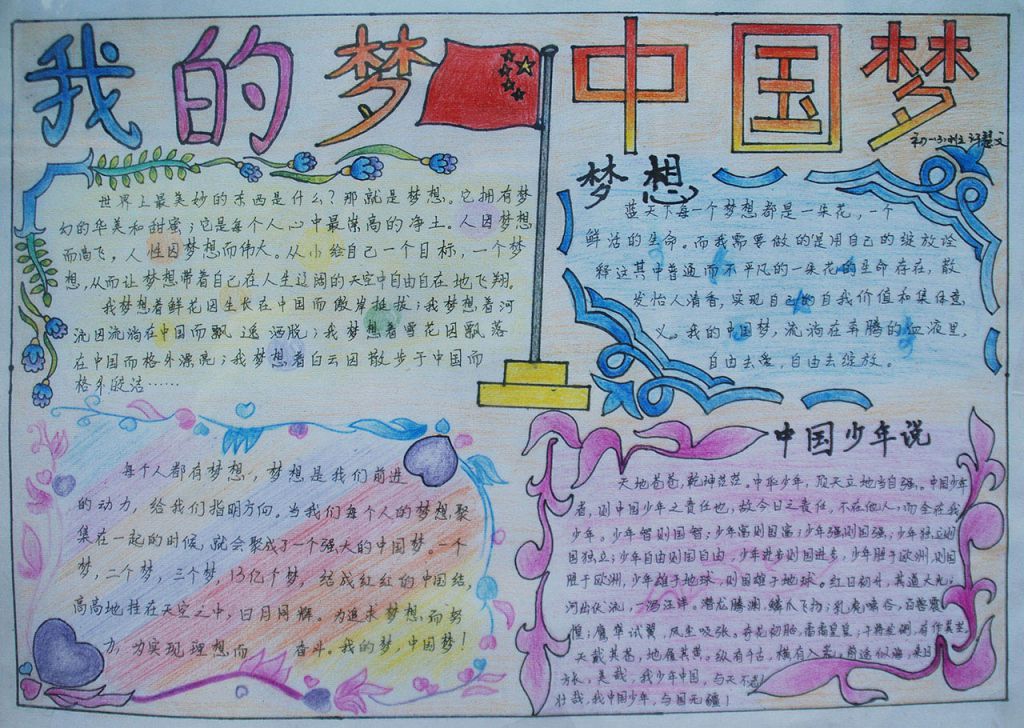 我的梦 中国梦
初一(3)班 许慧文
世界上最美妙的东西是什么?那就是梦想。它拥有梦
幻的华美和甜蜜;它是每个人心中最崇高的净土。人因梦想
而高飞,人性因梦想而伟大。从小给自己一个目标,一个梦
想,从而让梦想带着自己在人生辽阔的天空中自由自在地飞翔。
我梦想着鲜花因生长在中国而傲岸挺拔;我梦想着河
流因流淌在中国而飘逸洒脱;我梦想着雪花因飘落
在中国而格外漂亮;我梦想着白云因散步于中国而
格外皎洁……
梦想
蓝天下每一个梦想都是一朵花,一个
鲜活的生命。而我需要做的是用自己的绽放诠
释这其中普通而不平凡的一朵花的生命存在,散
发怡人清香,实现自己的自我价值和集体意
义。我的中国梦,流淌在奔腾的血液里,
自由去爱,自由去绽放。
每个人都有梦想,梦想是我们前进
的动力,给我们指明方向。当我们每个人的梦想聚
集在一起的时候,就会聚成了一个强大的中国梦。一个
梦,二个梦,三个梦,13亿个梦,结成红红的中国结,
高高地挂在天空之中,日月同辉。为追求梦想而努
力,为实现理想而奋斗。我的梦,中国梦!
中国少年说
天地苍苍,乾坤茫茫。中华少年,顶天立地当自强。中国少年
者,则中国少年之责任也,故今日之责任,不在他人,而全在我
少年。少年智则国智;少年富则国富;少年强则国强;少年独立则
国独立;少年自由则国自由,少年进步则国进步,少年胜于欧洲,则国
胜于欧洲,少年雄于地球,则国雄于地球。红日初升,其道大光;
河出伏流,一泻汪洋。潜龙腾渊,鳞爪飞扬;乳虎啸谷,百兽震
惶;鹰隼试翼,风尘吸张。奇花初胎,矞矞皇皇;干将发硎,有作其芒。
天戴其苍,地履其黄。纵有千古,横有八荒,前途似海,来日
方长。美哉,我少年中国,与天不老!
壮哉,我中国少年,与国无疆!